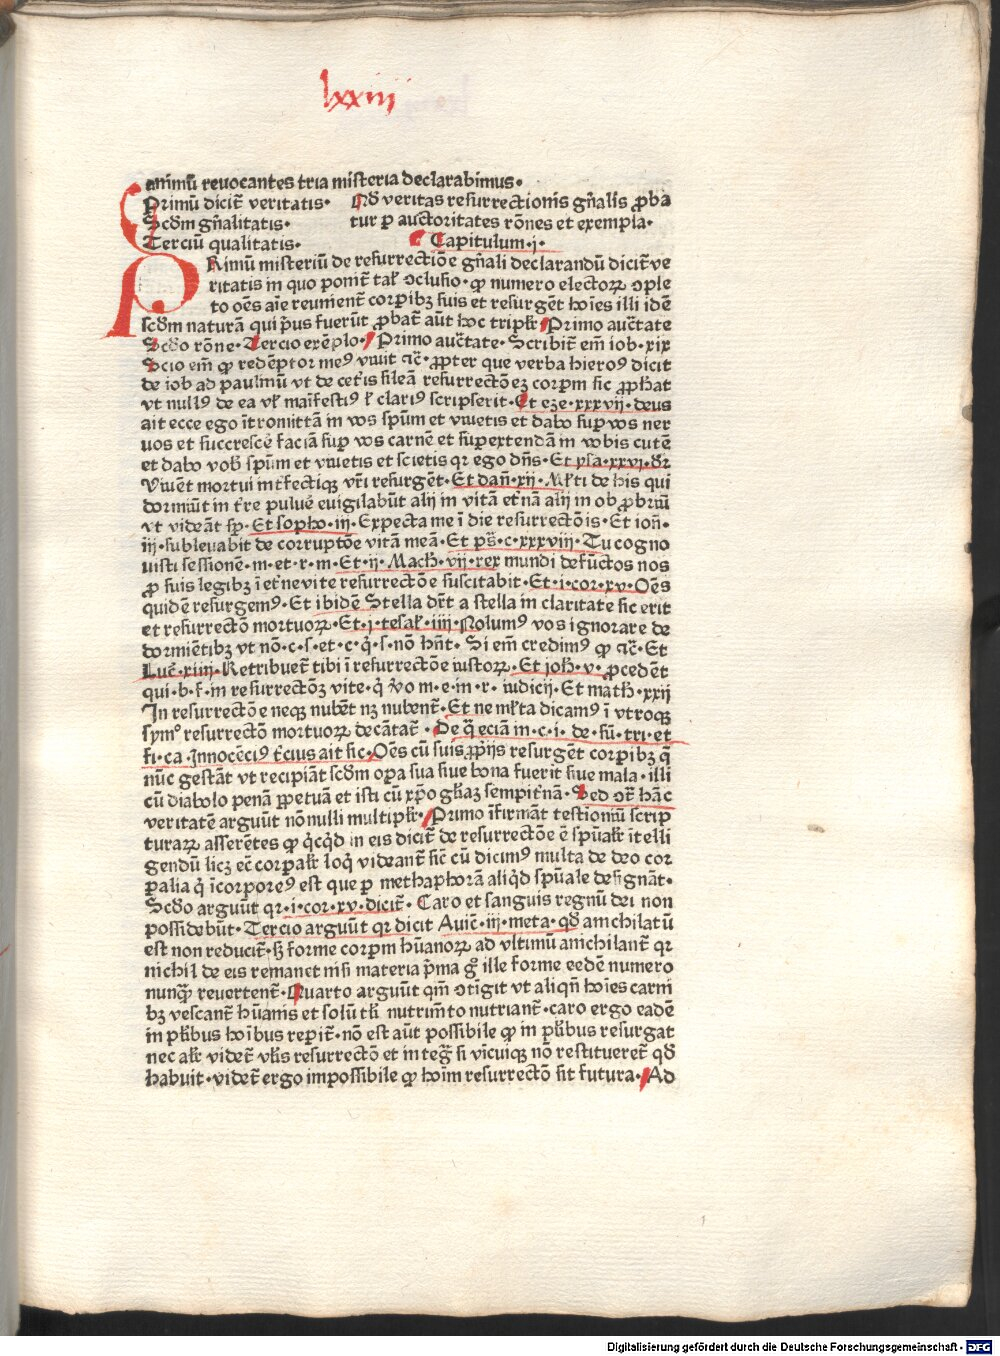 lxxiiij
animū revocantes tria misteria declarabimus·
Primū dicit̄ veritatis·
Scd̄m gn̄alitatis·
Terciū qualitatis·
Qd̄ veritas resurrectionis gn̄alis ꝓba
tur ꝑ auctoritates rōnes et exempla·
Capitulum·i·
PRimū misteriū de resurrectiōe gn̄ali declarandū dicit̄ ve
ritatis in quo ponit̄ tal̄ ꝯclusio· ꝙ numero electoꝝ ꝯple
to oēs aīe reunient̄ corꝑibꝫ suis et resurgēt hoīes illi idē
scd̄m naturā qui pͥus fuerūt ꝓbat̄ aūt hoc tripl̄r Primo auctate
Scd̄o rōne· Tercio exēplo· Primo auctate· Scribit̄ em̄ iob·xix
Scio em̄ ꝙ redēptor meꝰ vivit ⁊c̄· ꝓpter que verba hieroꝰ dicit
de iob ad paulinū vt de cet̄is sileā resurrectōeꝫ corꝑm sic ꝓphat
vt nullꝰ de ea vl̄ maīfestiꝰ l̄ clariꝰ scripserit· Et eze·xxxvij·deus
ait ecce ego ītromittā in vos spūm et vivetis et dabo suꝑ vos ner
vos et succrescē faciā suꝑ vos carnē et suꝑextendā in vobis cutē
et dabo vob̄ spūm et vivetis et scietis qꝛ ego dn̄s· Et ysa·xxvi·dꝛ
Vivēt mortui int̄fectiqꝫ vr̄i resurgēt· Et dan̄·xij·Ml̄ti de his qui
dormiūt in t̄re pulvē evigilabūt alij in vitā et̄nā alij in obꝓbriū
vt videāt sꝑ· Et sopho·iij· Expecta me ī die resurrectōis· Et ion̄·
iij·sublevabit de corruptōe vitā meā· Et ps̄·c·xxxviij· Tu cogno
visti sessionē·m·et·r·m·Et·ij·Mach̄·vij·rex mundi defūctos nos
ꝓ suis legibꝫ ī et̄ne vite resurrectōe suscitabit· Et·i·cor·xv·Oēs
quidē resurgemꝰ·Et ibidē Stella dr̄t a stella in claritate sic erit
et resurrectō mortuoꝝ·Et·j·tesal̄·iiij·Nolumꝰ vos ignorare de
dormiētibꝫ vt nō·c·s·et·c·q̇·s·nō hn̄t· Si em̄ credimꝰ ꝙ ⁊c̄·Et
Luc̄·xiiij·Retribuet̄ tibi ī resurrectōe iustoꝝ· Et ioh̄·v·ꝓcedēt
qui·b·f·in resurrectōꝫ vite·q̇ v̊o m·e·in·r· iudicij·Et math̄·xxij
In resurrectōe neqꝫ nubēt nꝫ nubent̄·Et ne ml̄ta dicamꝰ ī vtroqꝫ
symͦ resurrectō mortuoꝝ decātat̄ · De q̄ eciā in·c·i· de·sū·tri·et
fi·ca·Innocēciꝰ t̄cius ait sic·Oēs cū suis ꝓpͥijs resurgēt corꝑibꝫ q̄
nūc gestāt vt recipiāt scd̄m oꝑa sua sive bona fuerīt sive mala·illi
cū diabolo penā ꝑpetuā et isti cū xp̄o gl̄iaꝫ sempit̄nā· Sed ꝯt̄ hāc
veritatē arguūt nōnulli multipl̄r· Primo īfirmāt testioniū scrip
turaꝝ asserētes ꝙ qͥcqͥd in eis dicit̄ de resurrectōe ē spūal̄r ītelli
gendū licꝫ eē corꝑal̄r loqͥ videant̄ sic̄ cū dicimꝰ multa de deo cor
ꝑalia qͥ īcorporeꝰ est que ꝑ methaphorā aliqͥd spūale desig̅nāt·
Scd̄o arguūt qꝛ·i·cor·xv·dicit̄· Caro et sanguis regnū dei non
possidebūt· Tercio arguūt qꝛ dicit Avic̄·iij·meta·qd̄ annichilatū
est non reducit̄·sꝫ forme corꝑm hūanoꝝ ad vltimū annichilant̄ qꝛ
nichil de eis remanet nisi materia pͥma gͦ ille forme eedē numero
nunqͣꝫ revertent̄· Quarto arguūt qm̄ ꝯtīgit vt aliqn̄ hoīes carni
bꝫ vescant̄ hūanis et solū tl̄i nutrim̄to nutriant̄·caro ergo eadē
in pl̄ibus hoībus reꝑit̄·nō est aūt possibile ꝙ in pl̄ibus resurgat
nec al̄r videt̄ vl̄is resurrectō et integͣ si vnicuiqꝫ nō restitueret̄ qd̄
habuit·videt̄ ergo impossibile ꝙ hoīm resurrectō sit futura· Ad
Digitalisierung gefördert durch die Deutsche Forschungsgemeinschaft - DFG